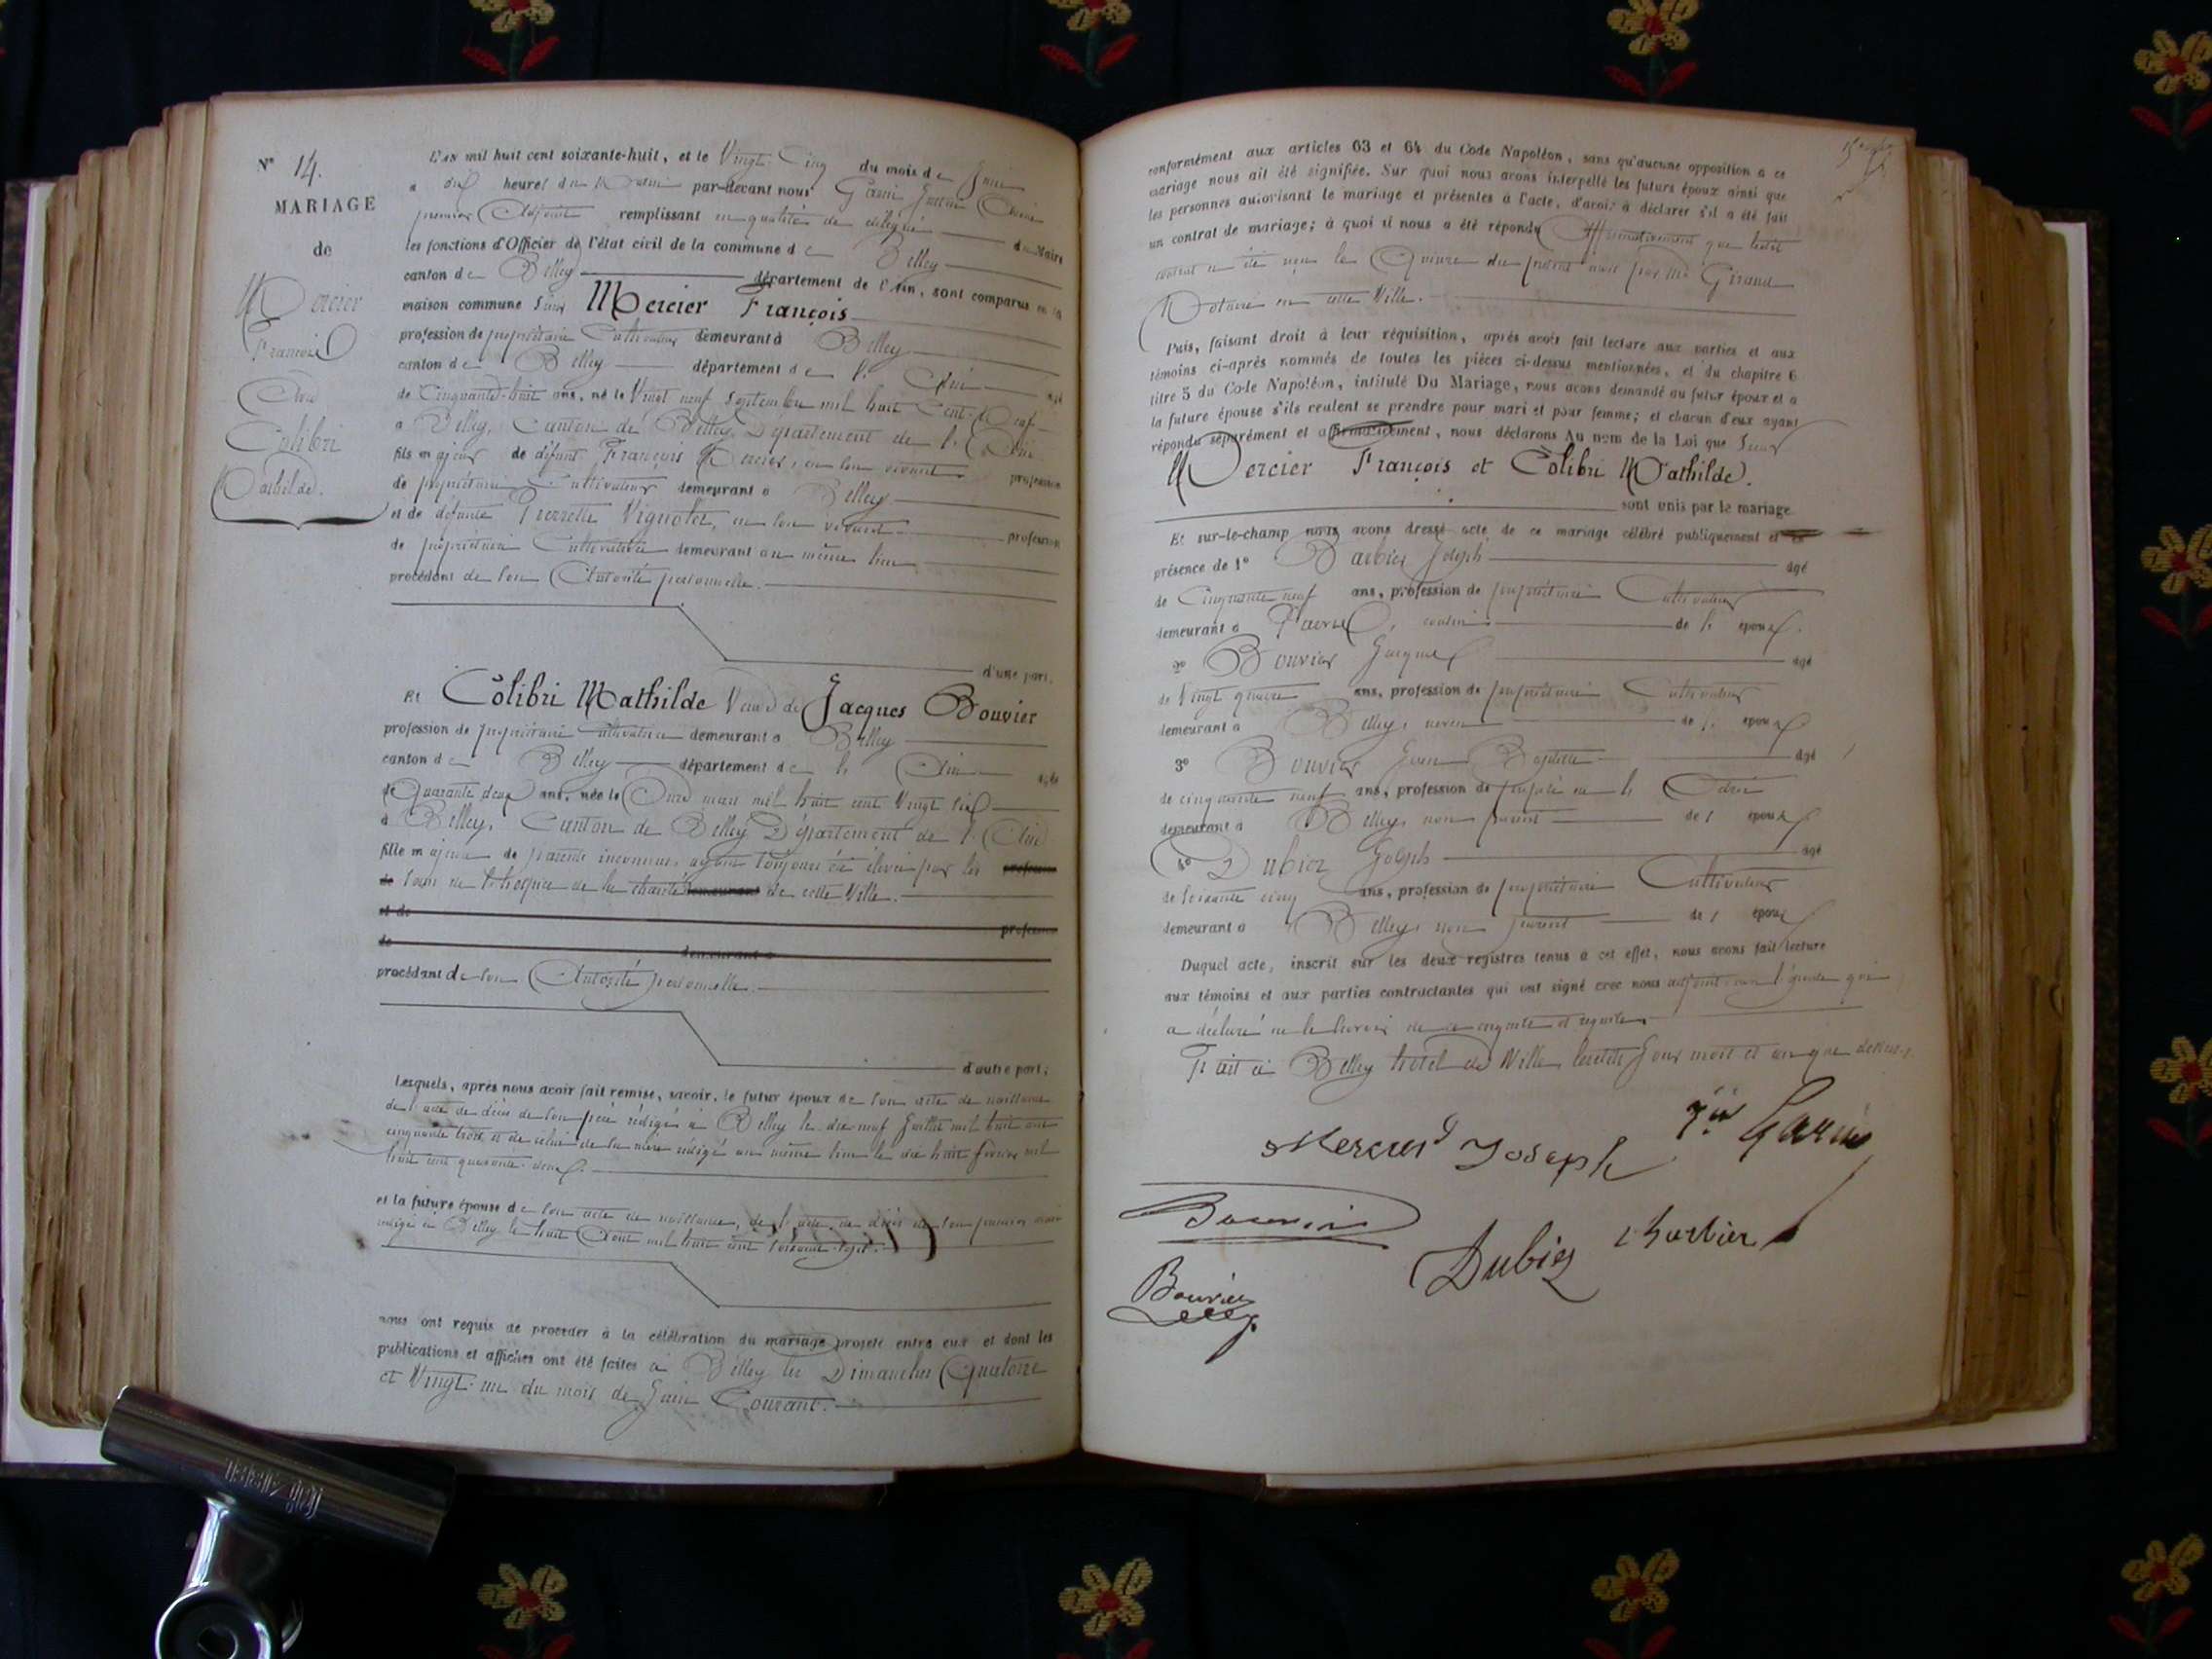 N° 14.
MARIAGE
de
Mercier
François
Avec
Colibri
Mathilde.
L'AN mil huit cent soixante-huit, et le Vingt-Cinq du mois de Juin
a dix heures du Matin par-devant nous Garin
premier Adjoint remplissant en qualité de délégué du Maire
les fonctions d'Officier de l'état civil de la commune de Belley
canton de Belley département de l'Ain, sont comparus en la
maison commune Sieur Mercier François
profession de propriétaire Cultivateur demeurant à Belley
canton de Belley département de l'Ain âgé
de Cinquante-huit ans, né le Vingt neuf Septembre mil huit Cent-Neuf
a Belley, Canton de Belley, Département de l'Ain
fils majeur de défunt François Mercier, en son vivant profession
de propriétaire Cultivateur demeurant à Belley
et de défunte Pierrette Vignollet, en son vivant profession
de propriétaire Cultivatrice demeurant au même lieu
procédant de son Autorité personnelle.
d'une part,
Et Colibri Mathilde Veuve de Jacques Bouvier
profession de propriétaire Cultivatrice demeurant à Belley
canton de Belley département de l'Ain âgée
de Quarante deux ans, née le Onze mars mil huit cent Vingt six
à Belley, Canton de Belley Département de l'Ain
fille majeure de parents inconnus, ayant toujours été élevée par les profession
de soins de l'hospice de la charité demeurant de cette Ville.
et de profession
de demeurant à
procédant de son Autorité personnelle.
d'autre part;
Lesquels, après nous avoir fait remise, savoir, le futur époux de son acte de naissance
de l'acte de décès de son père rédigé à Belley le dix neuf Juillet mil huit cent
cinquante trois et de celui de sa mère rédigé au même lieu le dix huit février mil
huit cent quarante-deux.
et la future épouse de son acte de naissance, de l'acte de décès de son premier mari
rédigé à Belley le huit Août mil huit cent soixante-sept.
nous ont requis de procéder à la célébration du mariage projeté entre eux et dont les
publications et affiches ont été faites à Belley les Dimanches Quatorze
et Vingt-un du mois de Juin Courant.
conformément aux articles 63 et 64 du Code Napoléon, sans qu'aucune opposition a ce
mariage nous ait été signifiée. Sur quoi nous avons interpellé les futurs époux ainsi que
les personnes autorisant le mariage et présentes à l'acte, d'avoir à déclarer s'il a été fait
un contrat de mariage; à quoi il nous a été répondu Affirmativement que ledit
contrat a été reçu le Quinze du présent mois par Me Giraud
Notaire en cette Ville.
Puis, faisant droit à leur réquisition, après avoir fait lecture aux parties et aux
témoins ci-après nommés de toutes les pièces ci-dessus mentionnées, et du chapitre 6
titre 5 du Code Napoléon, intitulé Du Mariage, nous avons demandé au futur époux et a
la future épouse s'ils veulent se prendre pour mari et pour femme; et chacun d'eux ayant
répondu séparément et affirmativement, nous déclarons Au nom de la Loi que Sieur
Mercier François et Colibri Mathilde.
sont unis par le mariage
Et sur-le-champ nous avons dressé acte de ce mariage célébré publiquement et en
présence de 1° Barbier Joseph âgé
de Cinquante neuf ans, profession de propriétaire Cultivateur
demeurant à cousin de l'époux.
2° Bouvier Jacques âgé
de Vingt quatre ans, profession de propriétaire Cultivateur
demeurant à Belley, neveu de l'époux
3° Bouvier Jean Baptiste âgé
de cinquante neuf ans, profession de
demeurant à Belley, non parent de l'époux
4° Dubiez Joseph âgé
de soixante cinq ans, profession de propriétaire Cultivateur
demeurant à Belley, non parent de l'époux
Duquel acte, inscrit sur les deux registres tenus à cet effet, nous avons fait lecture
aux témoins et aux parties contractantes qui ont signé avec nous adjoint, non l'épouse qui
a déclaré ne le savoir de ce enquise et requise.
Fait à Belley hotel de Ville lesdits Jour mois et an que dessus.
Mercier Joseph
Jn Garin
Bouvier
Dubiez
Barbier
Bouvier